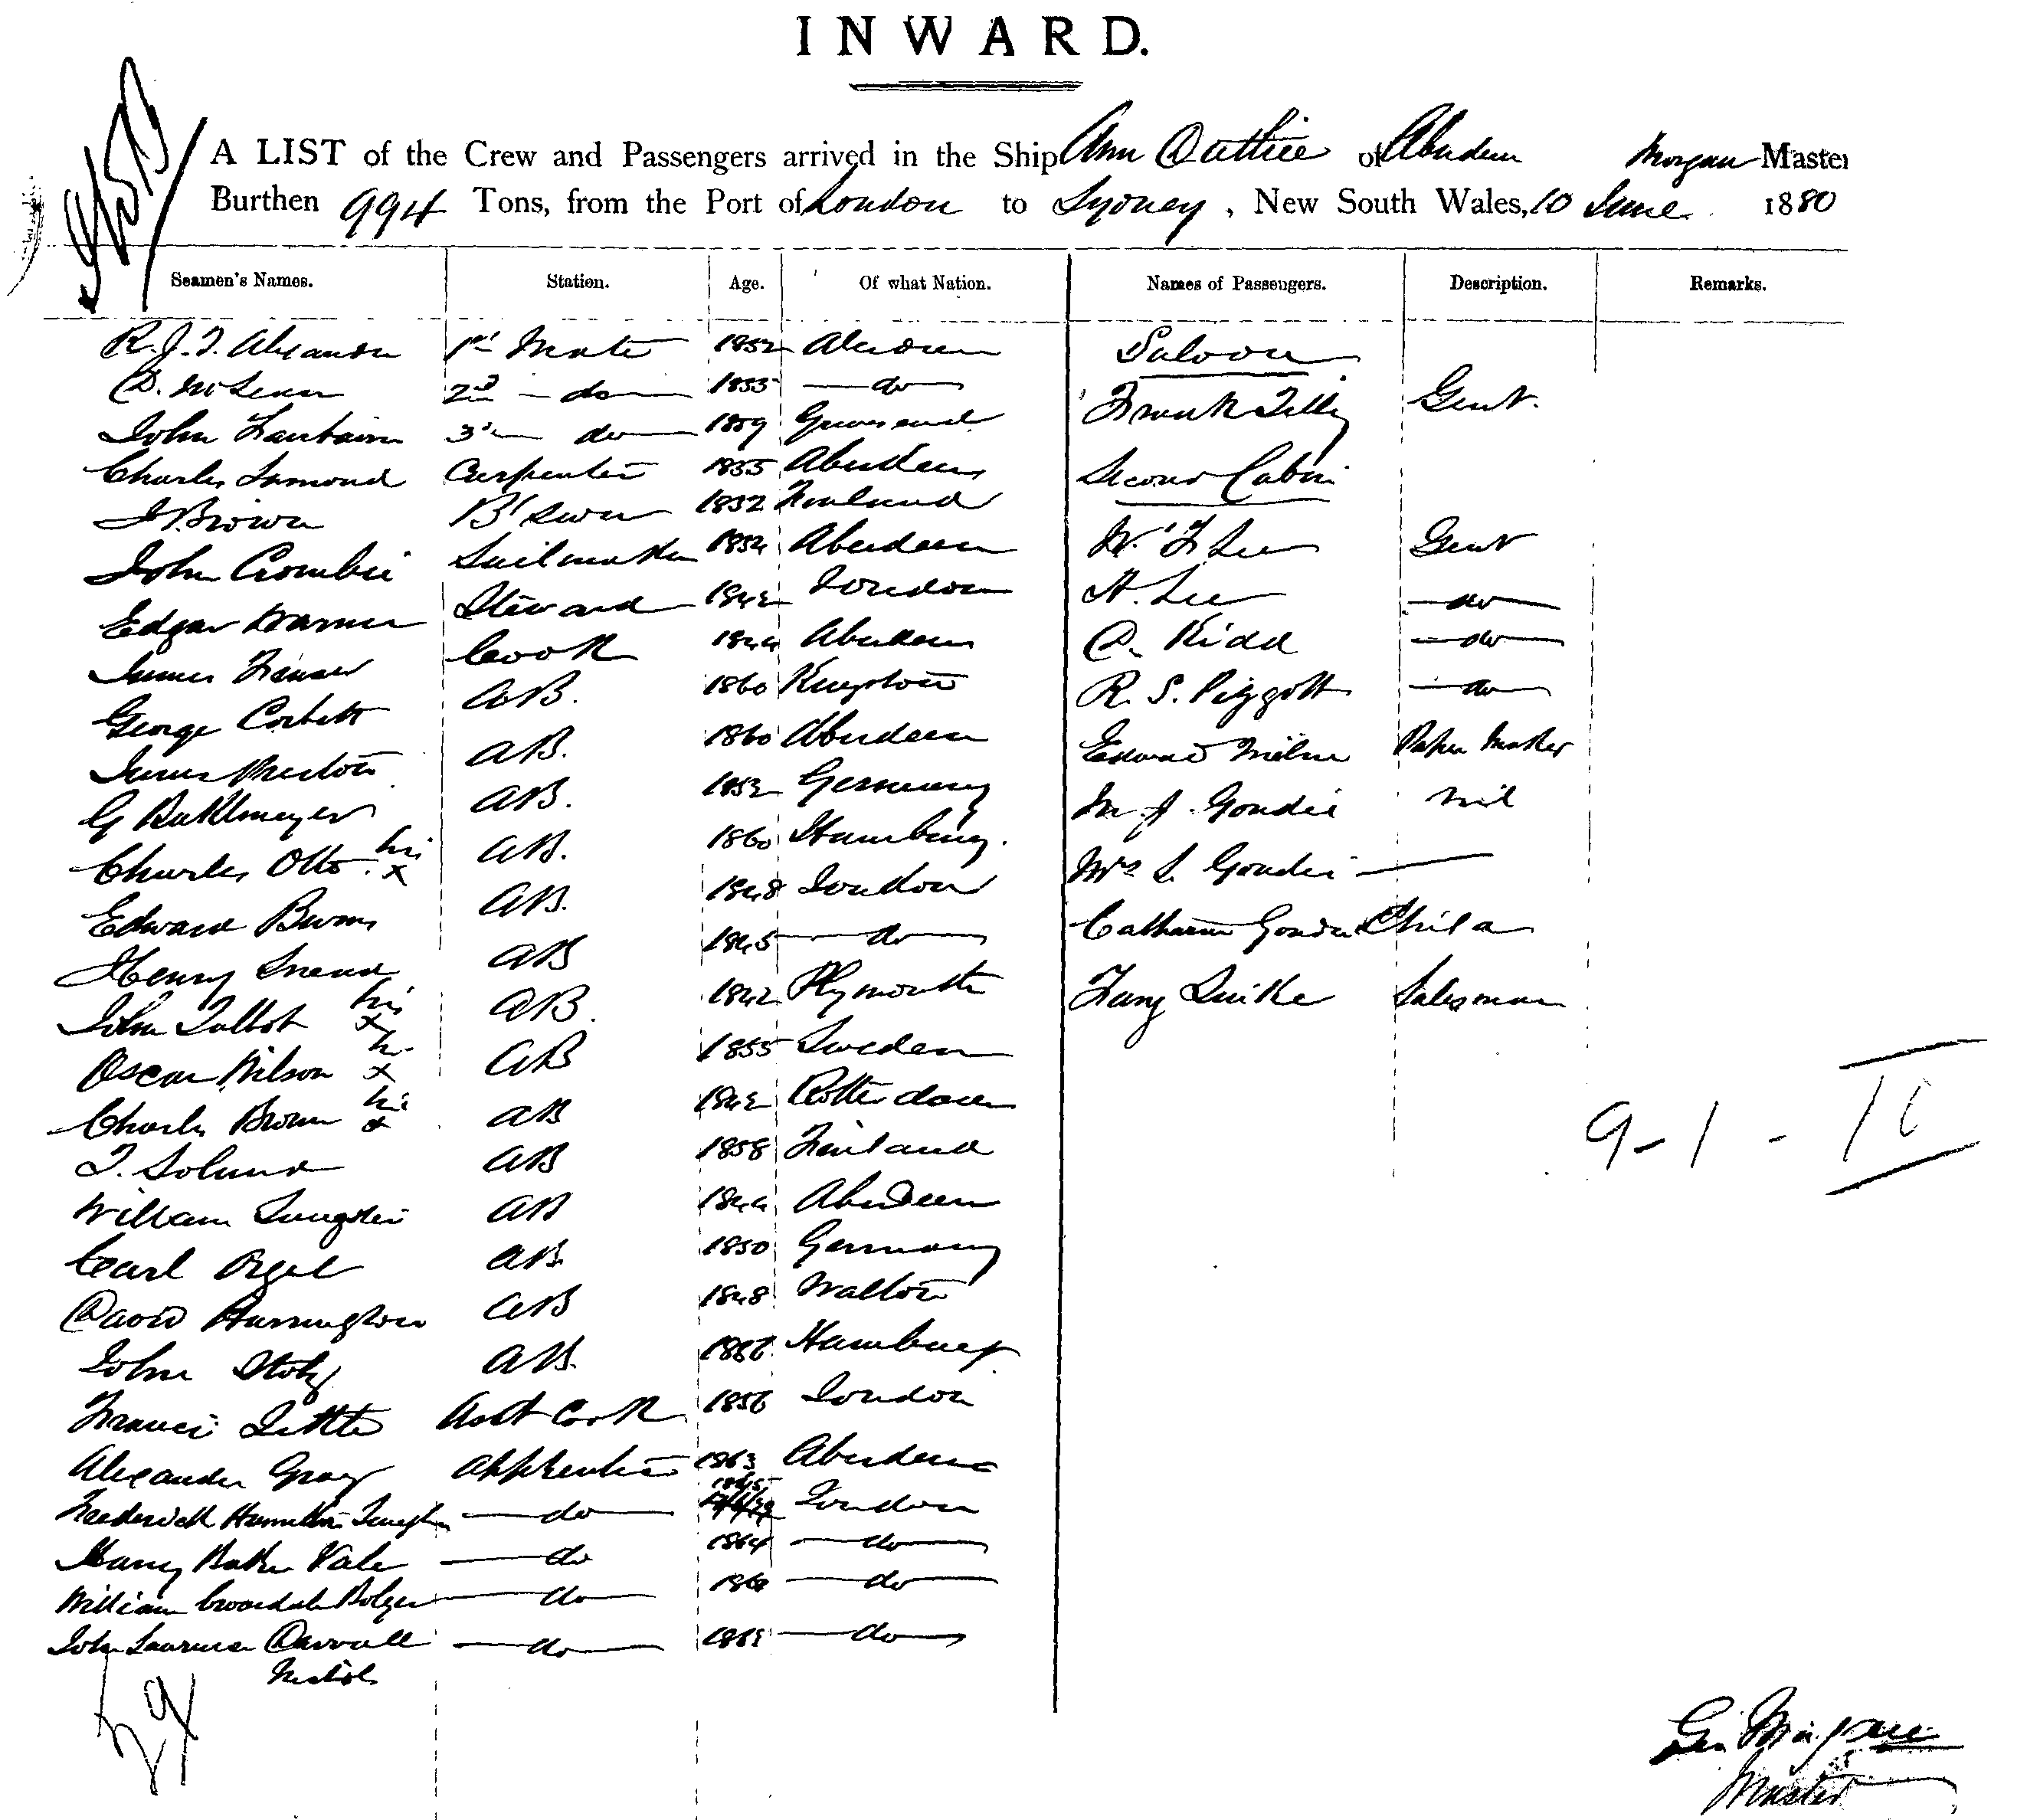 INWARD.
A LIST of the Crew and Passengers arrived in the Ship Ann Duthie of Aberdeen Morgan Master
Burthen 994 Tons, from the Port of London to Sydney, New South Wales, 10 June 1880
Seamen's Names. Station. Age. Of what Nation. Names of Passengers. Description. Remarks.
R. J. T. Alexander 1st Mate 1852 Aberdeen Saloon
D. McLean 2nd - do 1855 do Frank Tilly Gent.
John Fairbairn 3rd do 1859 Gravesend
Charles Lamond Carpenter 1855 Aberdeen Second Cabin
J Brown B'swn 1852 Finland
John Crombie Sailmaker 1854 Aberdeen W. F Lee Gent
Edgar Warner Steward 1842 London A. Lee do
James Fraser Cook 1844 Aberdeen D. Kidd do
George Corbett A.B. 1860 Kingston R. S. Piggott do
James Preston AB. 1860 Aberdeen Edward Milne Paper Maker
G AB. 1852 Germany M J. Goudie nil
Charles Otto his x AB. 1860 Hamburg. Mrs L. Goudie
Edward Burns AB. 1848 London Catharine Goudie Child
Henry AB 1845 do
John Talbot his x AB. 1842 Plymouth Salesman
Oscar Wilson his x AB 1855 Sweden
Charles Brown his x AB 1842 Rotterdam
AB 1858 Finland
William AB 1844 Aberdeen
Carl AB 1850 Germany
David Harrington AB 1848 Walton
John Stolz AB. Hamburg
Francis Little Asst Cook 1856 London
Alexander Gray Apprentice 1863 Aberdeen
Frederick Hamilton do London
Harry Baker Vale do 1864 do
William Bolger do do
John Laurence Carroll do do
29
9-1-10
Geo Morgan
Master